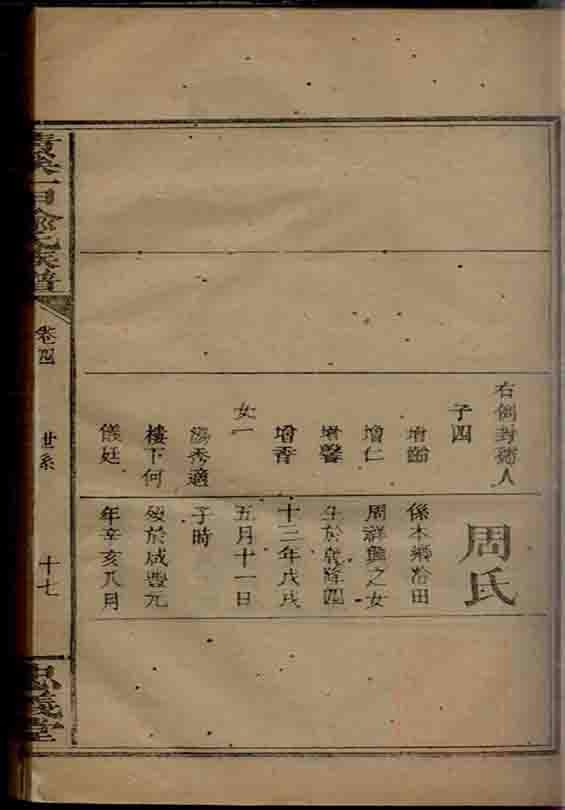 子四
增仁
增馨
增香
女一
秀適
樓下何
儀廷
周氏
係本鄉田
周祥興之女
生於乾隆四
十三年戊戌
五月十一日
子時
歿於咸豐元
年辛亥八月
氏族譜
卷四
世系
十七
忠義堂